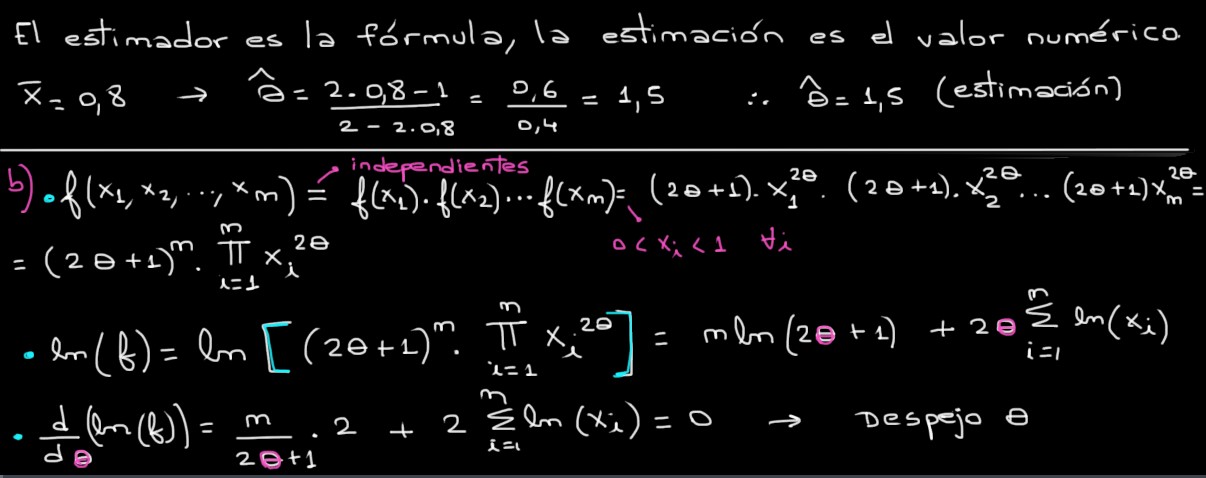 El estimador es la fórmula, la estimación es el valor numérico.
x̄ = 0,8 → θ̂ = (2·0,8-1)/(2-2·0,8) = 0,6/0,4 = 1,5 ∴ θ̂ = 1,5 (estimación)
independientes
b) • f(x₁, x₂, ..., xₘ) = f(x₁)·f(x₂)...f(xₘ) = (2θ+1)·x₁^{2θ}·(2θ+1)·x₂^{2θ}...(2θ+1)xₘ^{2θ} =
0 < xᵢ < 1 ∀i
= (2θ+1)^m · ∏_{i=1}^{m} xᵢ^{2θ}
• ln(f) = ln[(2θ+1)^m · ∏_{i=1}^{m} xᵢ^{2θ}] = m ln(2θ+1) + 2θ ∑_{i=1}^{m} ln(xᵢ)
• d/dθ (ln(f)) = m/(2θ+1) · 2 + 2 ∑_{i=1}^{m} ln(xᵢ) = 0 → Despejo θ